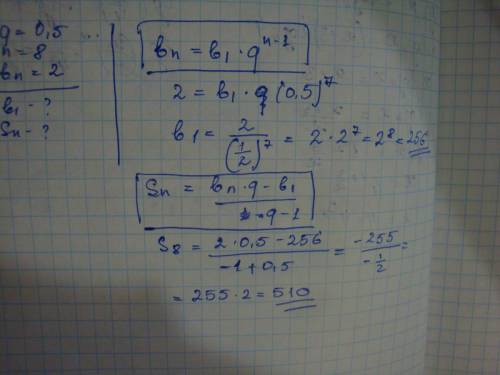 q = 0,5
n = 8
bn = 2
b1 - ?
Sn - ?
bn = b1 · q^(n-1)
2 = b1 · (0,5)^7
b1 = 2 / (1/2)^7 = 2 · 2^7 = 2^8 = 256
Sn = (bn · q - b1) / (q - 1)
S8 = (2 · 0,5 - 256) / (-1 + 0,5) = -255 / (-1/2) =
= 255 · 2 = 510